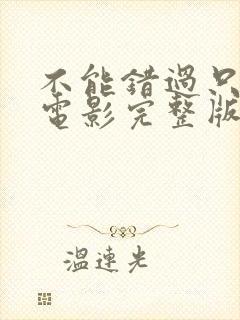 不能錯過只
電影完整版
溫連光